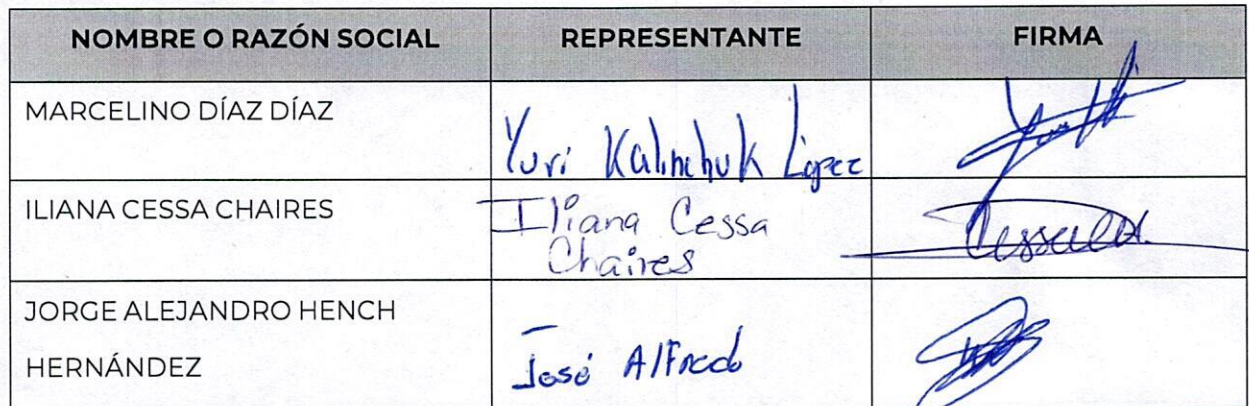 NOMBRE O RAZÓN SOCIAL REPRESENTANTE FIRMA
MARCELINO DÍAZ DÍAZ
Yuri Kalinchuk López
ILIANA CESSA CHAIRES
Iliana Cessa
Chaires
JORGE ALEJANDRO HENCH
HERNÁNDEZ
José Alfredo